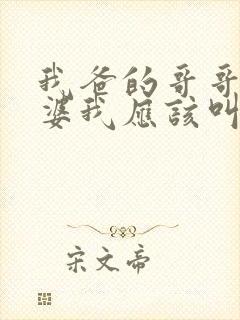 我爸的哥哥
婆我应该叫
宋文帝